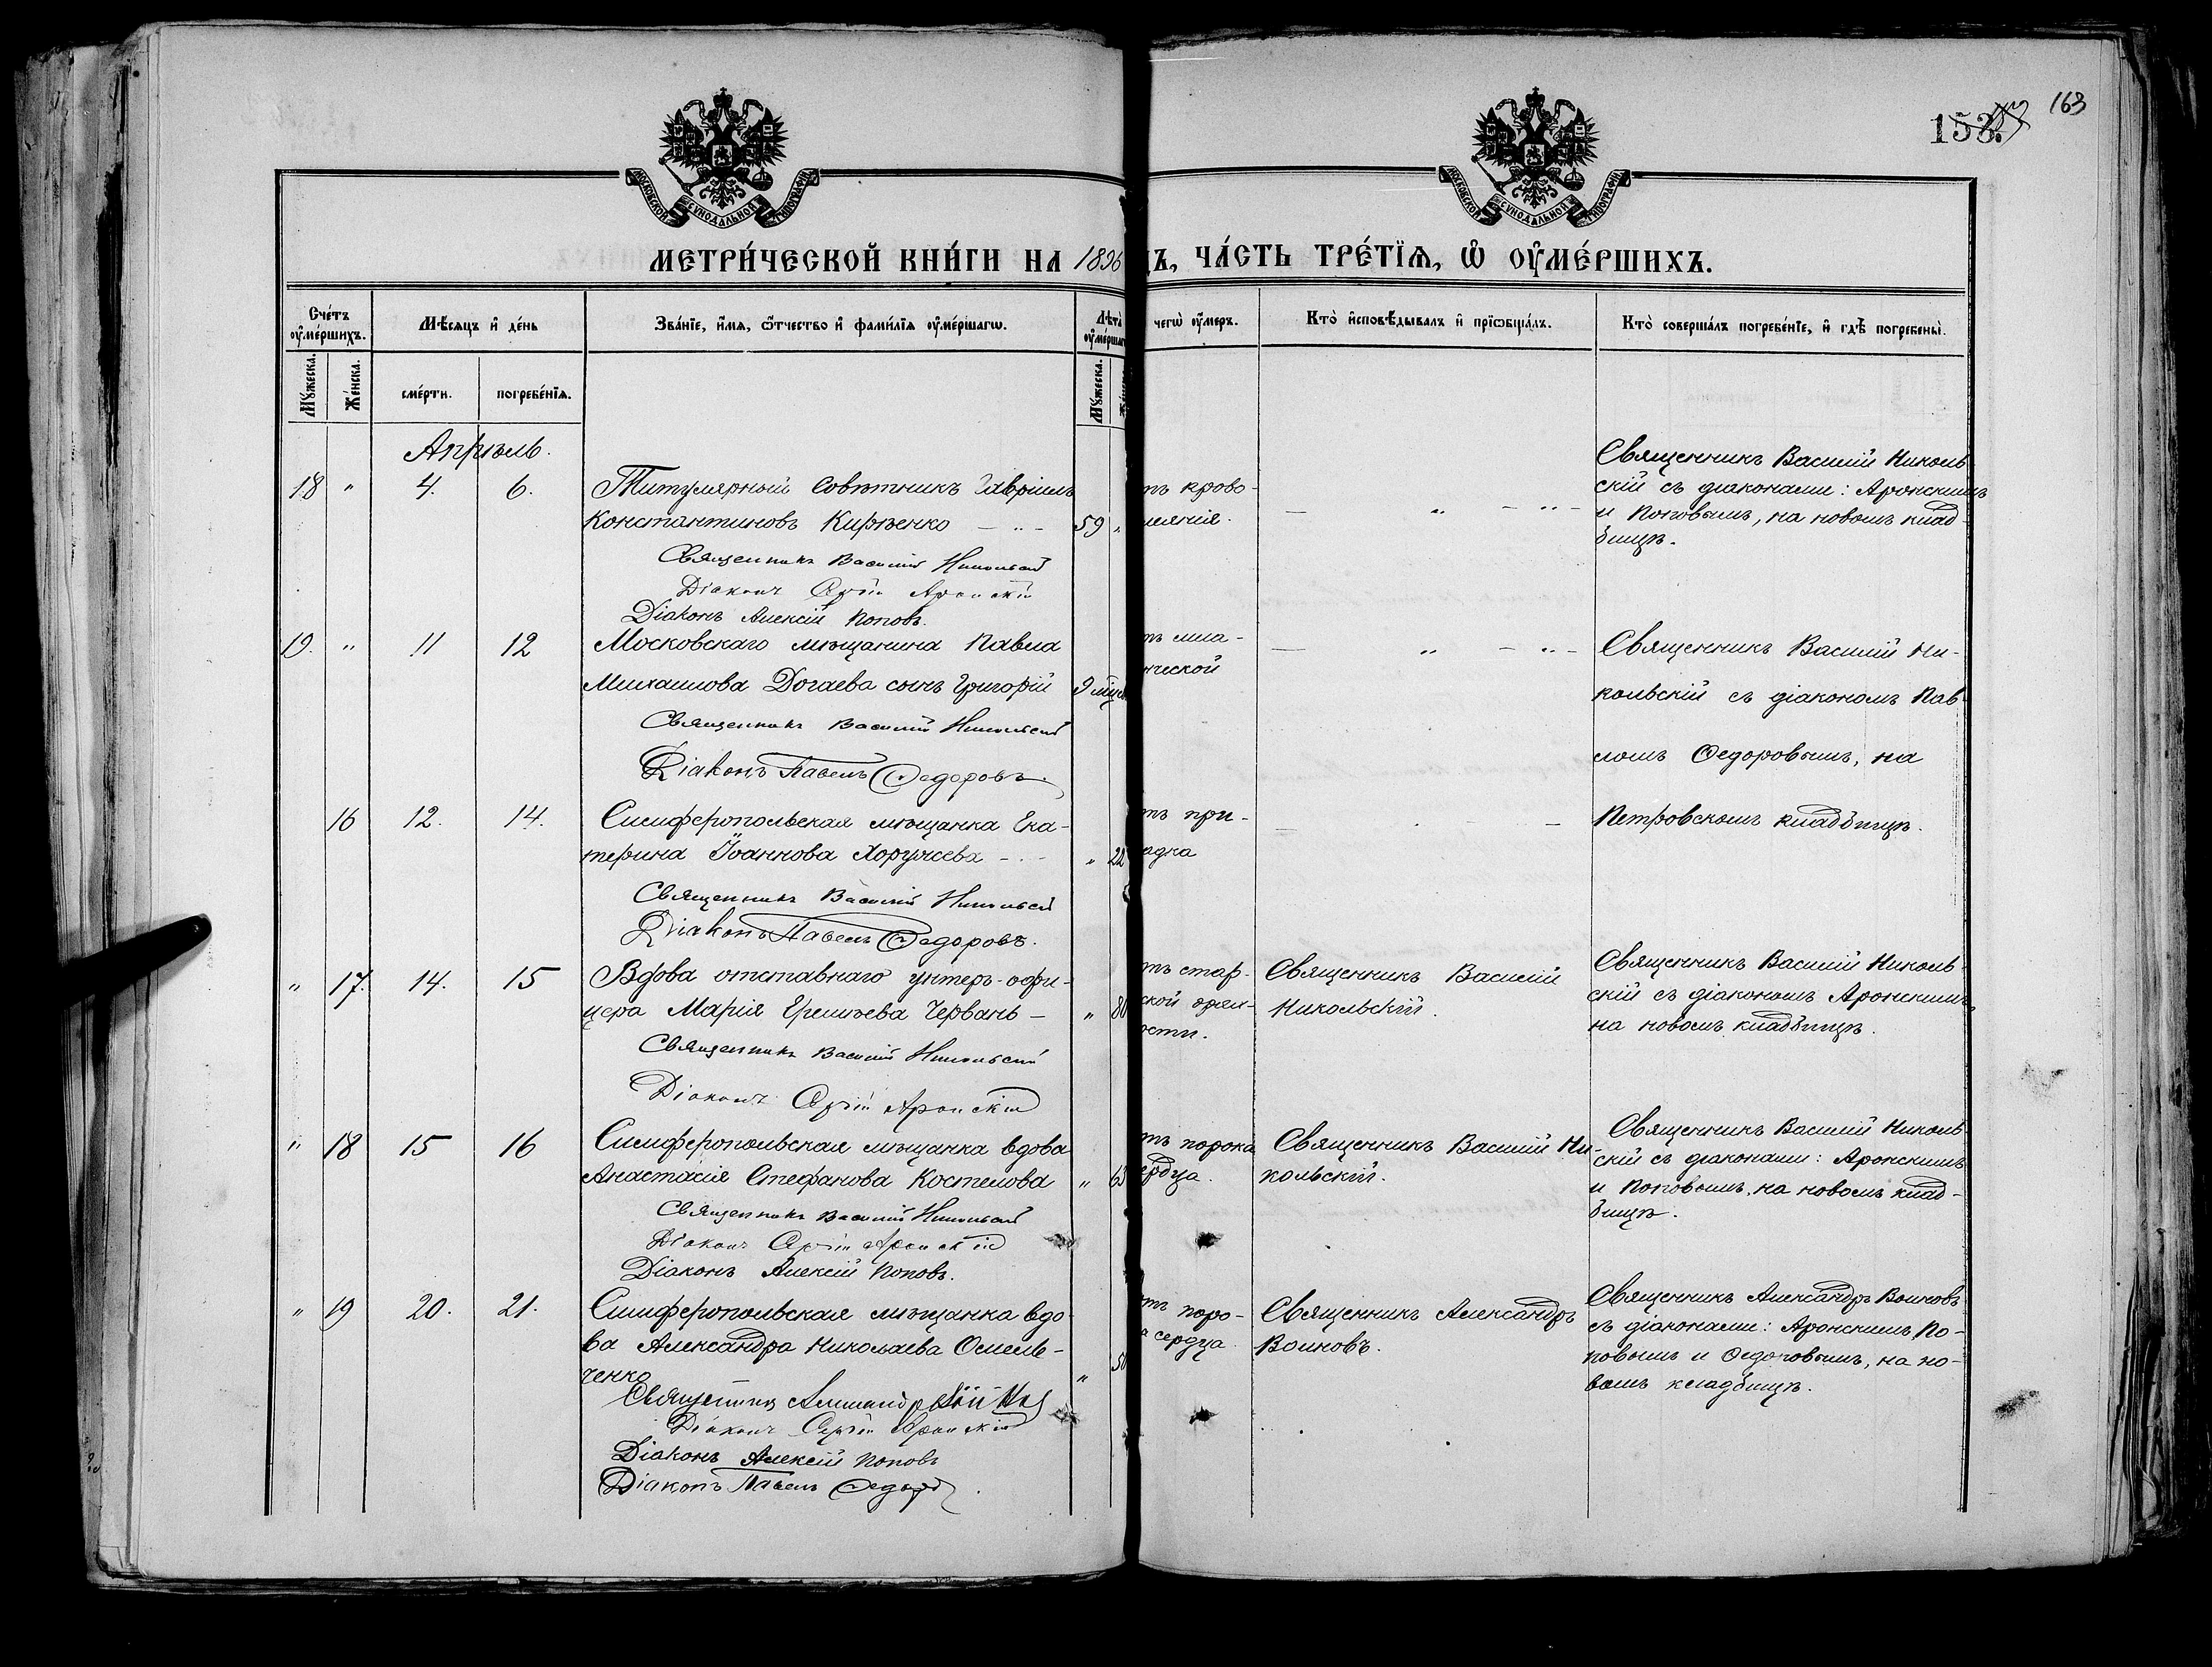 153.
163
МОСКОВСКОЙ СѴНОДАЛЬНОЙ ТИПОГРАФІИ
МОСКОВСКОЙ СѴНОДАЛЬНОЙ ТИПОГРАФІИ
МЕТРИ́ЧЕСКОЙ КНИ́ГИ НА 1896
Ъ, ЧА́СТЬ ТРЕ́ТЇѦ, Ѡ ОУМЕ́РШИХЪ.
Сче́тъ оуме́ршихъ.
Мѣсяцъ и де́нь
Зва́нїе, и́мѧ, ѻтчество и фами́лїѧ оуме́ршагѡ.
Лѣта̀ оуме́ршаг
чегѡ̀ оу́меръ.
Кто̀ исповѣдывалъ и прїѡбща́лъ.
Кто̀ соверша́лъ погребе́нїе, и гдѣ погребены̀.
Мꙋжеска.
Же́нска.
сме́рти.
погребе́нїѧ.
Мꙋжеска.
Апрѣль.
18 " 4. 6. Титулярный Совѣтникъ Гавріилъ
Константиновъ Кирѣенко — 59 "
Священникъ Василій Никольскій
Діаконъ Сергій Аронскій
Діаконъ Алексій Поповъ.
тъ крово-
Священникъ Василій Николь-
скій съ діаконами: Аронскимъ
и Поповымъ, на новомъ клад-
бищѣ.
19. " 11 12 Московскаго мѣщанина Павла
Михаилова Догаева сынъ Григорій 9 мѣс
Священникъ Василій Никольскій
Діаконъ Павелъ Ѳедоровъ.
ческой
Священникъ Василій Ни-
кольскій съ діакономъ Пав-
ломъ Ѳедоровымъ, на
Петровскомъ кладбищѣ.
16 12. 14. Симферопольская мѣщанка Ека-
терина Іоаннова Хоружева — " 22
Священникъ Василій Никольскій
Діаконъ Павелъ Ѳедоровъ.
тъ при-
адка
" 17. 14. 15 Вдова отставнаго унтеръ-офи-
цера Марія Червань — " 80
Священникъ Василій Никольскій
Діаконъ Сергій Аронскій
тъ стар-
ской дрях-
ости.
Священникъ Василій
Никольскій.
Священникъ Василій Николь-
скій съ діакономъ Аронскимъ,
на новомъ кладбищѣ.
" 18 15 16 Симферопольская мѣщанка вдова
Анастасія Стефанова Костелова " 63
Священникъ Василій Никольскій
Діаконъ Сергій Аронскій
Діаконъ Алексій Поповъ.
тъ порока
ердца.
Священникъ Василій Ни-
кольскій.
Священникъ Василій Николь-
скій съ діаконами: Аронскимъ
и Поповымъ, на новомъ клад-
бищѣ.
" 19 20. 21. Симферопольская мѣщанка вдо-
ва Александра Николаева Омель-
ченко " 50
Священникъ Александръ
Діаконъ Сергій Аронскій
Діаконъ Алексій Поповъ
Діаконъ Павелъ Ѳедоровъ
тъ поро-
а сердца.
Священникъ Александръ
Воиновъ.
Священникъ Александръ Воиновъ
съ діаконами: Аронскимъ По-
повымъ и Ѳедоровымъ, на но-
вомъ кладбищѣ.